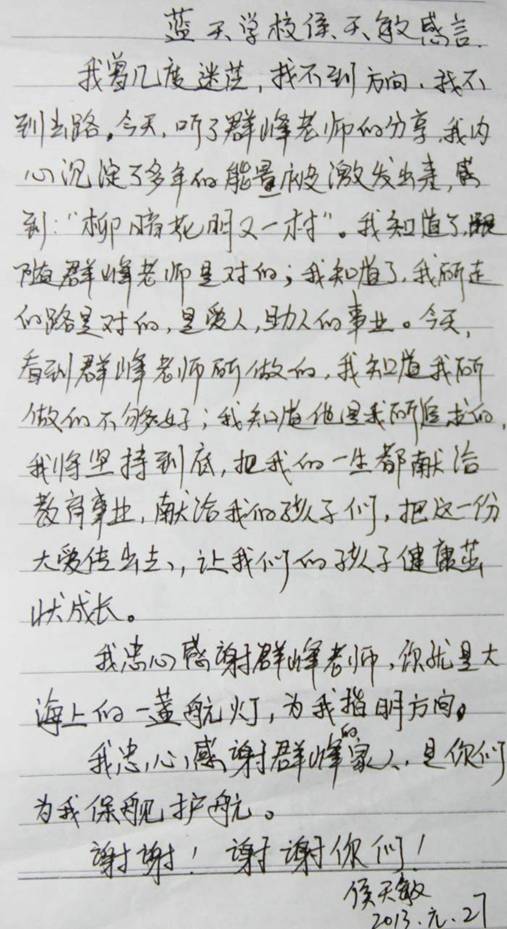 蓝天学校侯天敏感言.
我曾几度迷茫,找不到方向、找不
到出路。今天,听了群峰老师的分享,我内
心沉淀了多年的能量被激发出来,感
到:“柳暗花明又一村”。我知道了,跟
随群峰老师是对的;我知道了,我所走
的路是对的,是爱人,助人的事业。今天,
看到群峰老师所做的,我知道我所
做的不够好;我知道他是我所追求的,
我将坚持到底,把我的一生都献给
教育事业,献给我的孩子们,把这一份
大爱传出去,让我们的孩子健康茁
状成长。
我忠心感谢群峰老师,你就是大
海上的一盏航灯,为我指明方向。
我忠心感谢群峰的家人,是你们
为我保舰护航。
谢谢!谢谢你们!
侯天敏
2013.元.27